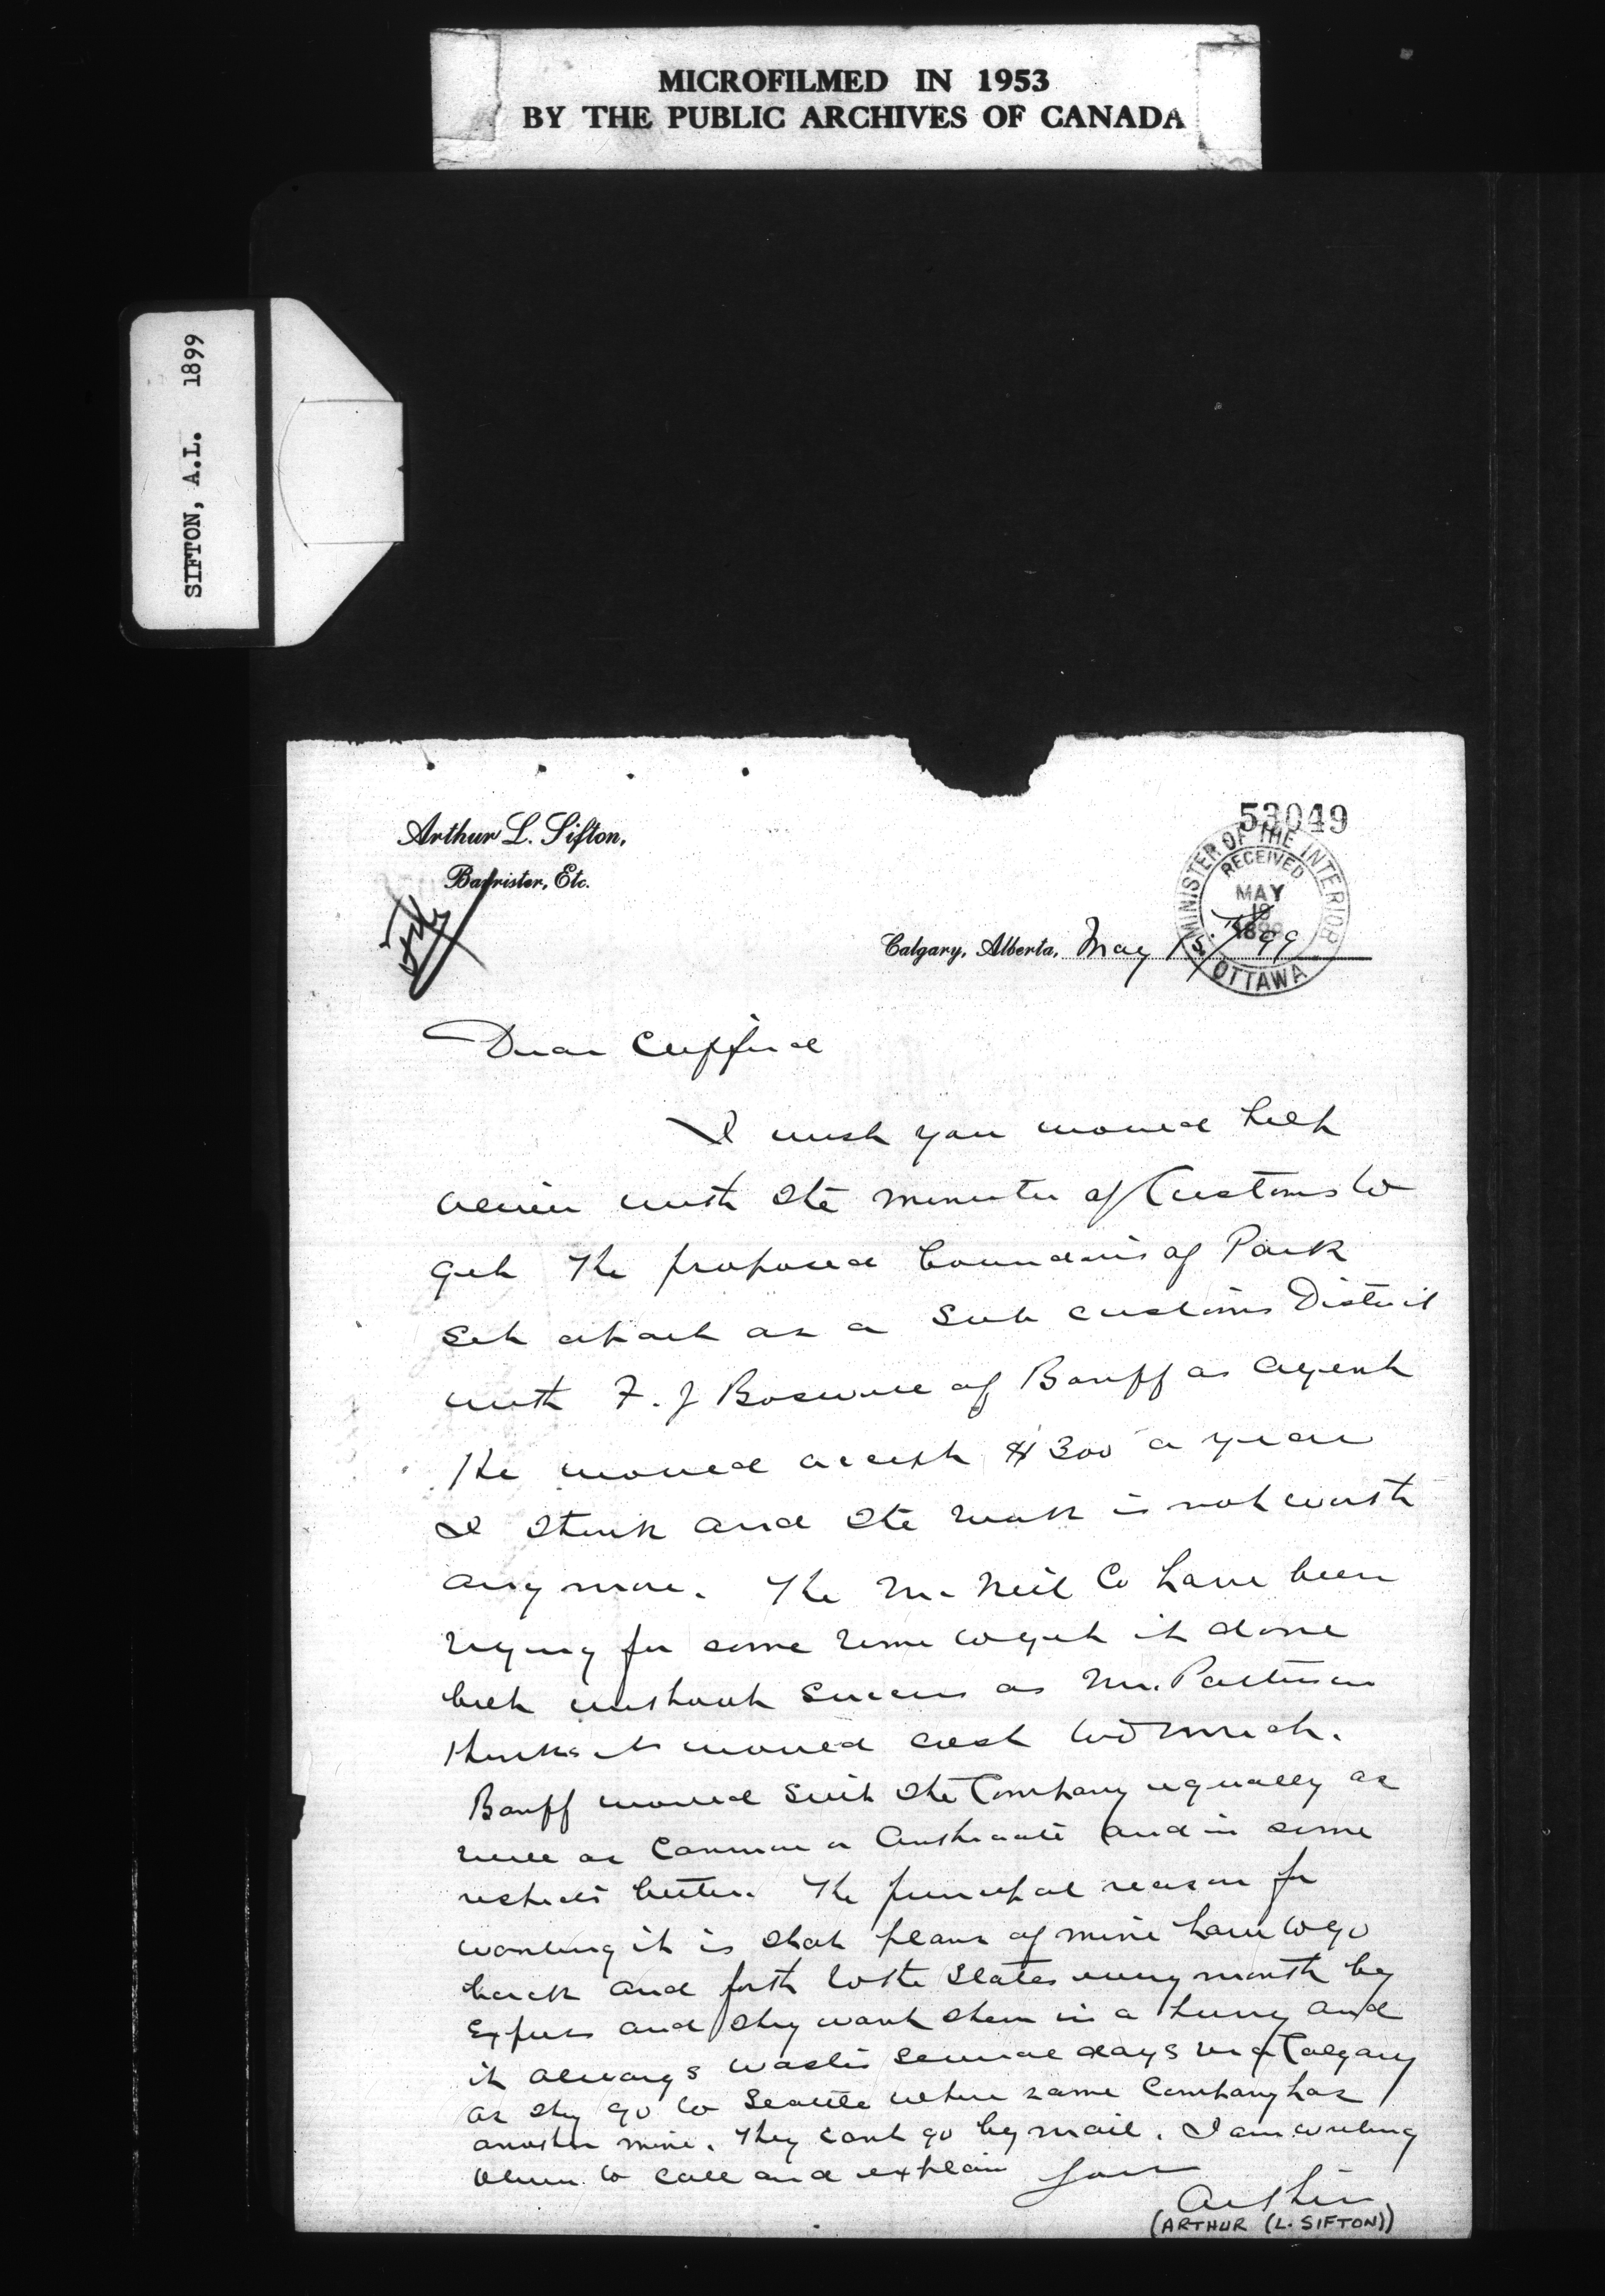 MICROFILMED IN 1953
BY THE PUBLIC ARCHIVES OF CANADA
SIFTON, A.L. 1899
53049
Arthur L. Sifton,
Barrister, Etc.
MINISTER OF THE INTERIOR
RECEIVED
MAY
19
1899
OTTAWA
Calgary, Alberta, May 15/99
Dear Clifford
I wish you would help
Oliver with the Minister of Customs to
get the proposed boundaries of Park
set apart as a Sub customs District
with F. J Boswell of Banff as agent
He would accept $300 a year
I think and the work is not worth
any more. The McNeil Co have been
trying for some time to get it done
but without success as Mr. Patterson
thinks it would cost too much.
Banff would suit the Company equally as
well as Canmore or Anthracite and in some
respects better. The principal reason for
wanting it is that plans of mine have to go
back and forth to the States every month by
Express and they want them in a hurry and
it always wastes several days via Calgary
as they go to Seattle where same Company has
another mine. They cant go by mail. I am writing
Oliver to call and explain Yours
Arthur
(ARTHUR (L. SIFTON))